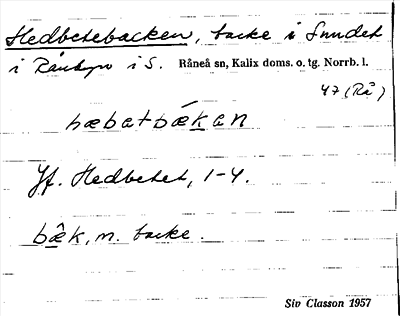 Hedbetebacken, backe i Sundet
i Rånbyn i S. Råneå sn, Kalix doms. o. tg. Norrb. l.
47 (Rå)
hæbatbækan
Jf. Hedbetet, 1-4.
bæ̂k, m. backe.
Siv Classon 1957